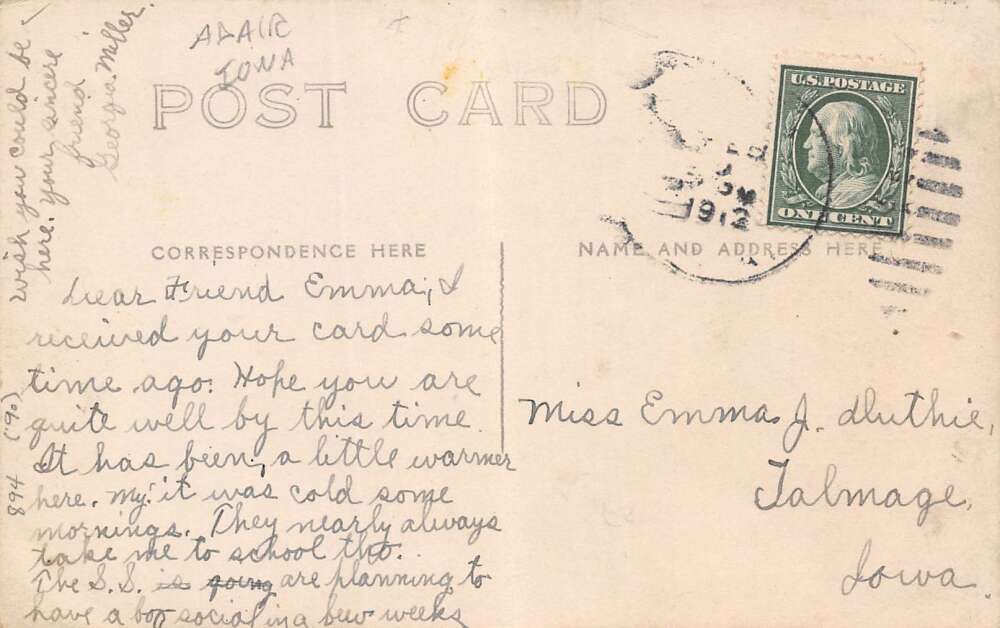 ADAIR
IOWA
POST CARD
U.S. POSTAGE
ONE CENT
1912
CORRESPONDENCE HERE
NAME AND ADDRESS HERE
Dear Friend Emma, I
received your card some
time ago. Hope you are
quite well by this time.
It has been, a little warmer
here. My! it was cold some
mornings. They nearly always
take me to school tho.
The S.S. is going are planning to
have a box social in a few weeks
wish you could be
here. your sincere
friend
Georgia Miller.
894 (190)
Miss Emma J. Duthie,
Talmage,
Iowa.